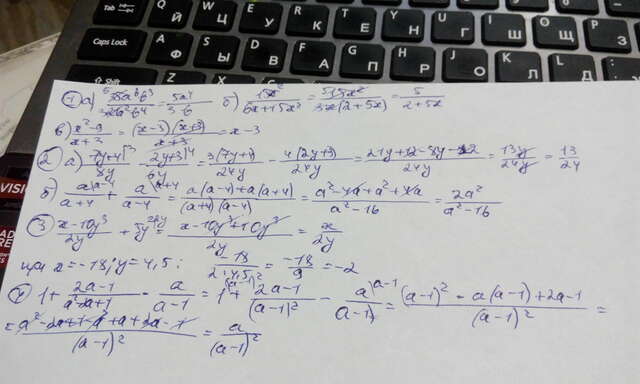 Tab Q Й W Ц E У R К T Е Y Н U Г I Ш O Щ P З
Caps Lock A Ф S Ы D В F А G П H Р J О K Л L Д
① а) = 5a⁴/3b б) 15x²/(6x+15x²) = 5·3x²/(3x(2+5x)) = 5/(2+5x)
в) (x²-9)/(x+3) = (x-3)(x+3)/(x+3) = x-3
② а) (7y+4)/8y - (2y+3)/6y = 3(7y+4)/24y - 4(2y+3)/24y = (21y+12-8y-12)/24y = 13y/24y = 13/24
б) a/(a+4) + a/(a-4) = (a(a-4)+a(a+4))/((a+4)(a-4)) = (a²-4a+a²+4a)/(a²-16) = 2a²/(a²-16)
③ (x-10y³)/2y + 5y² = (x-10y³+10y³)/2y = x/2y
при x=-18; y=4,5: -18/(2·4,5) = -18/9 = -2
④ 1 + (2a-1)/(a²-2a+1) - a/(a-1) = 1 + (2a-1)/(a-1)² - a/(a-1) = ((a-1)² - a(a-1)+2a-1)/(a-1)² =
= (a²-2a+1-a²+a+2a-1)/(a-1)² = a/(a-1)²